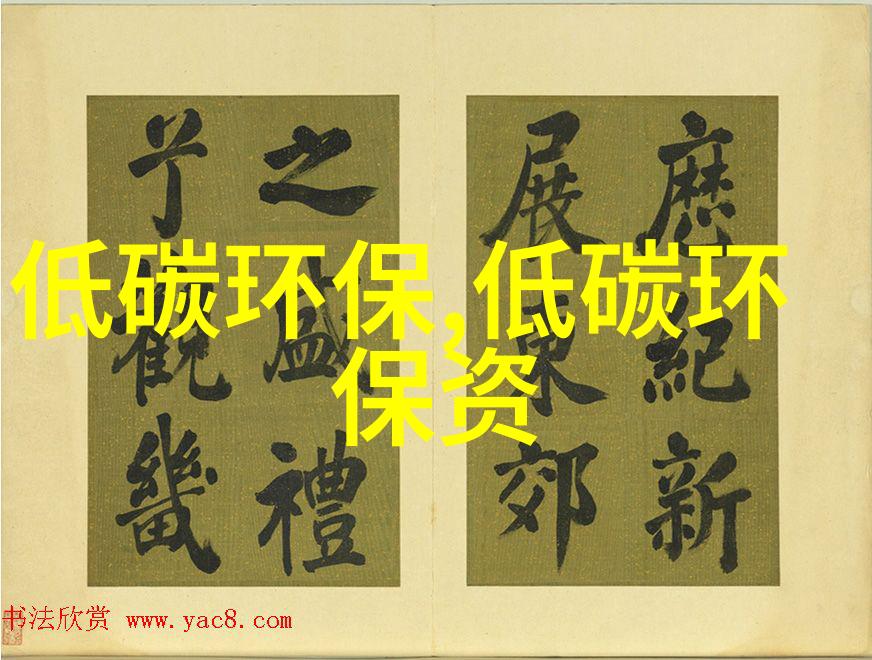 厯紀新
展東郊
之盛禮
觀畿
低碳环保,低碳环
保资
书法欣赏 www.yac8.com